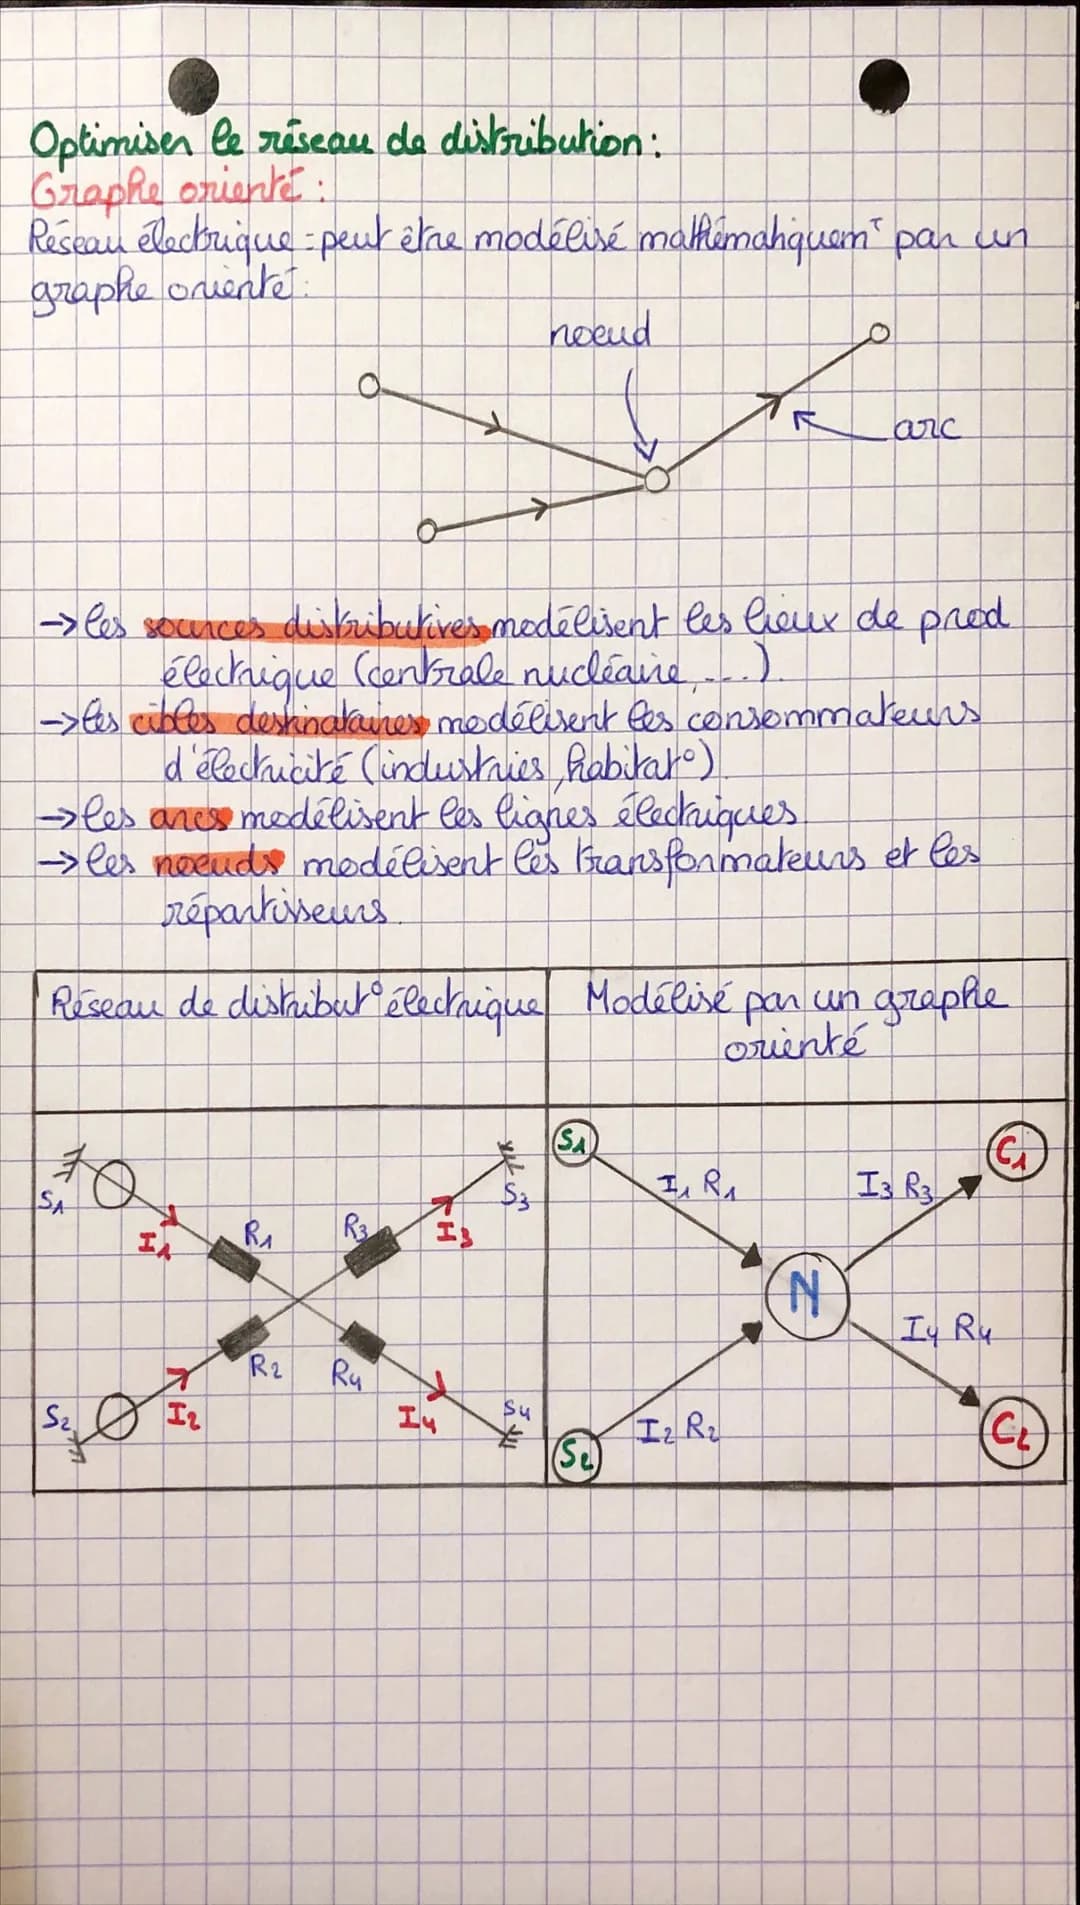 Optimiser le réseau de distribution :
Graphe orienté :
Réseau électrique = peut être modélisé mathématiquemᵗ par un
graphe orienté :
noeud
arc
→ les sources distributives modélisent les lieux de prod
électrique (centrale nucléaire, ....).
→ les cibles destinataires modélisent les consommateurs
d'électricité (industries, habitat°).
→ les arcs modélisent les lignes électriques.
→ les noeuds modélisent les transformateurs et les
répartisseurs.
Réseau de distribut° électrique
Modélisé par un graphe
orienté
S1
I1
R1
R3
I3
S3
S2
I2
R2
R4
I4
S4
S1
I1 R1
I3 R3
C1
N
I4 R4
I2 R2
S2
C2